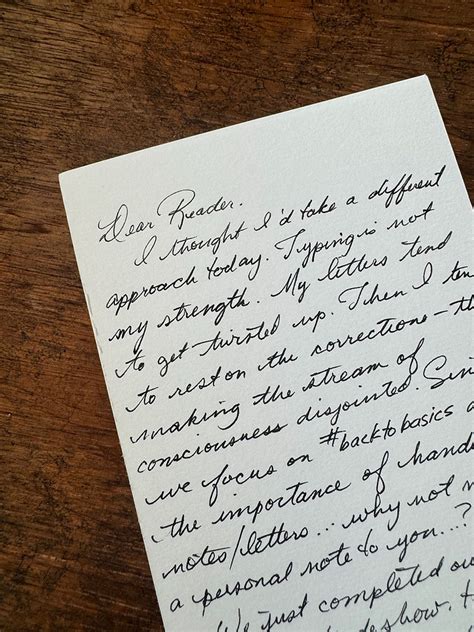 Dear Reader.
I thought I'd take a different
approach today. Typing is not
my strength. My letters tend
to get twisted up. Then I
to rest on the corrections –
making the stream of
consciousness disjointed.
we focus on #backtobasics
the importance of
notes/letters... why not
a personal note to you...?
We just completed